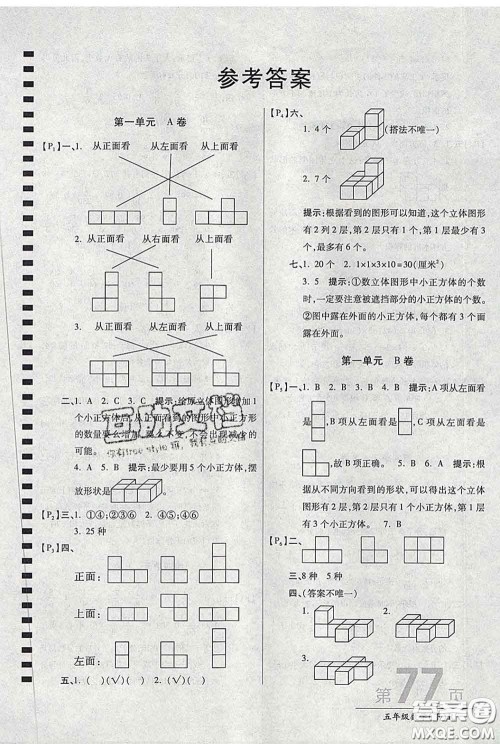 参考答案
第一单元 A卷
【P₁】一、1. 从正面看 从左面看 从上面看
2. 从正面看 从右面看 从上面看
3. 从正面看 从左面看 从上面看
二、1. A 2. C 3. C 提示：给原立体图形增加1
个小正方体后，看到的图形中小正方形
的数量要么增加，要么不变，不会出现减少的
可能。
4. A 5. B 提示：最少要用5个小正方体，摆
放形状是
【P₂】三、1. ①④；②③⑥ 2. ①⑤⑥；②③④
3. 25种
【P₃】四、
正面：
上面：
左面：
五、1. ( )(√)( ) 2. ( )(√)( )
【P₄】六、
1. 4个 (搭法不唯一)
2. 7个
提示：根据看到的图形可以知道，这个立体图形
有2列2层，第2层只有1个，第1层最少有3
个，最多有6个。
七、1. 20个 2. 1×1×3×10=30(厘米²)
3. 5 提示：①数立体图形中小正方体的个数
时，一定要注意被遮挡部分的小正方体的个数。
②图中露在外面的小正方体，每个小正方体有3
个面露在外面。
第一单元 B卷
【P₅】一、1. B 2. B 3. B 提示：A项从左面看
是，B项从左面看是，C项从左面看是
，故选B。 4. A 5. B 提示：根据
从不同方向看到的形状，可以知道这个立体图形
有2层，第2层只有1个小正方体。 6. A 7. B
【P₆】二、
三、8种 5种
四、(答案不唯一)
1. 2.
3. 4.
第77页
五年级
答案圈
MXQE.COM